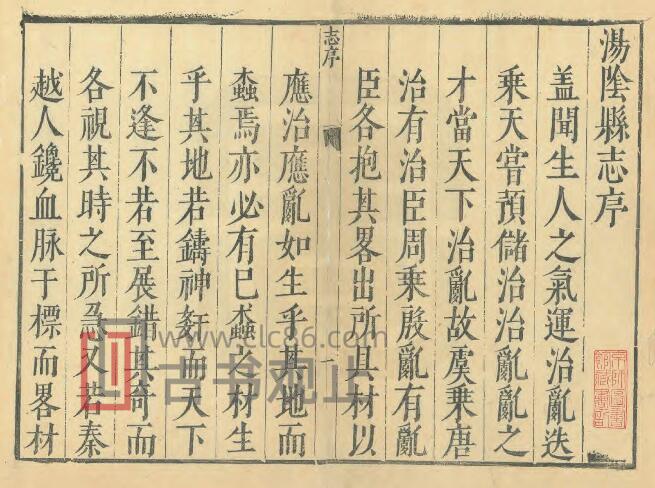 湯陰縣志序
盖聞生人之氣運治亂迭
乘天嘗預儲治治亂亂之
才當天下治亂故虞乘唐
治有治臣周乘殷亂有亂
臣各抱其畧出所具材以
志序
一
應治應亂如生乎其地而
蠱焉亦必有已蠱之材生
乎其地若鑄神姧而天下
不逢不若至展錯其奇而
各視其時之所急又若秦
越人鑱血脉于標而畧材
www.clc86.com
古书观止